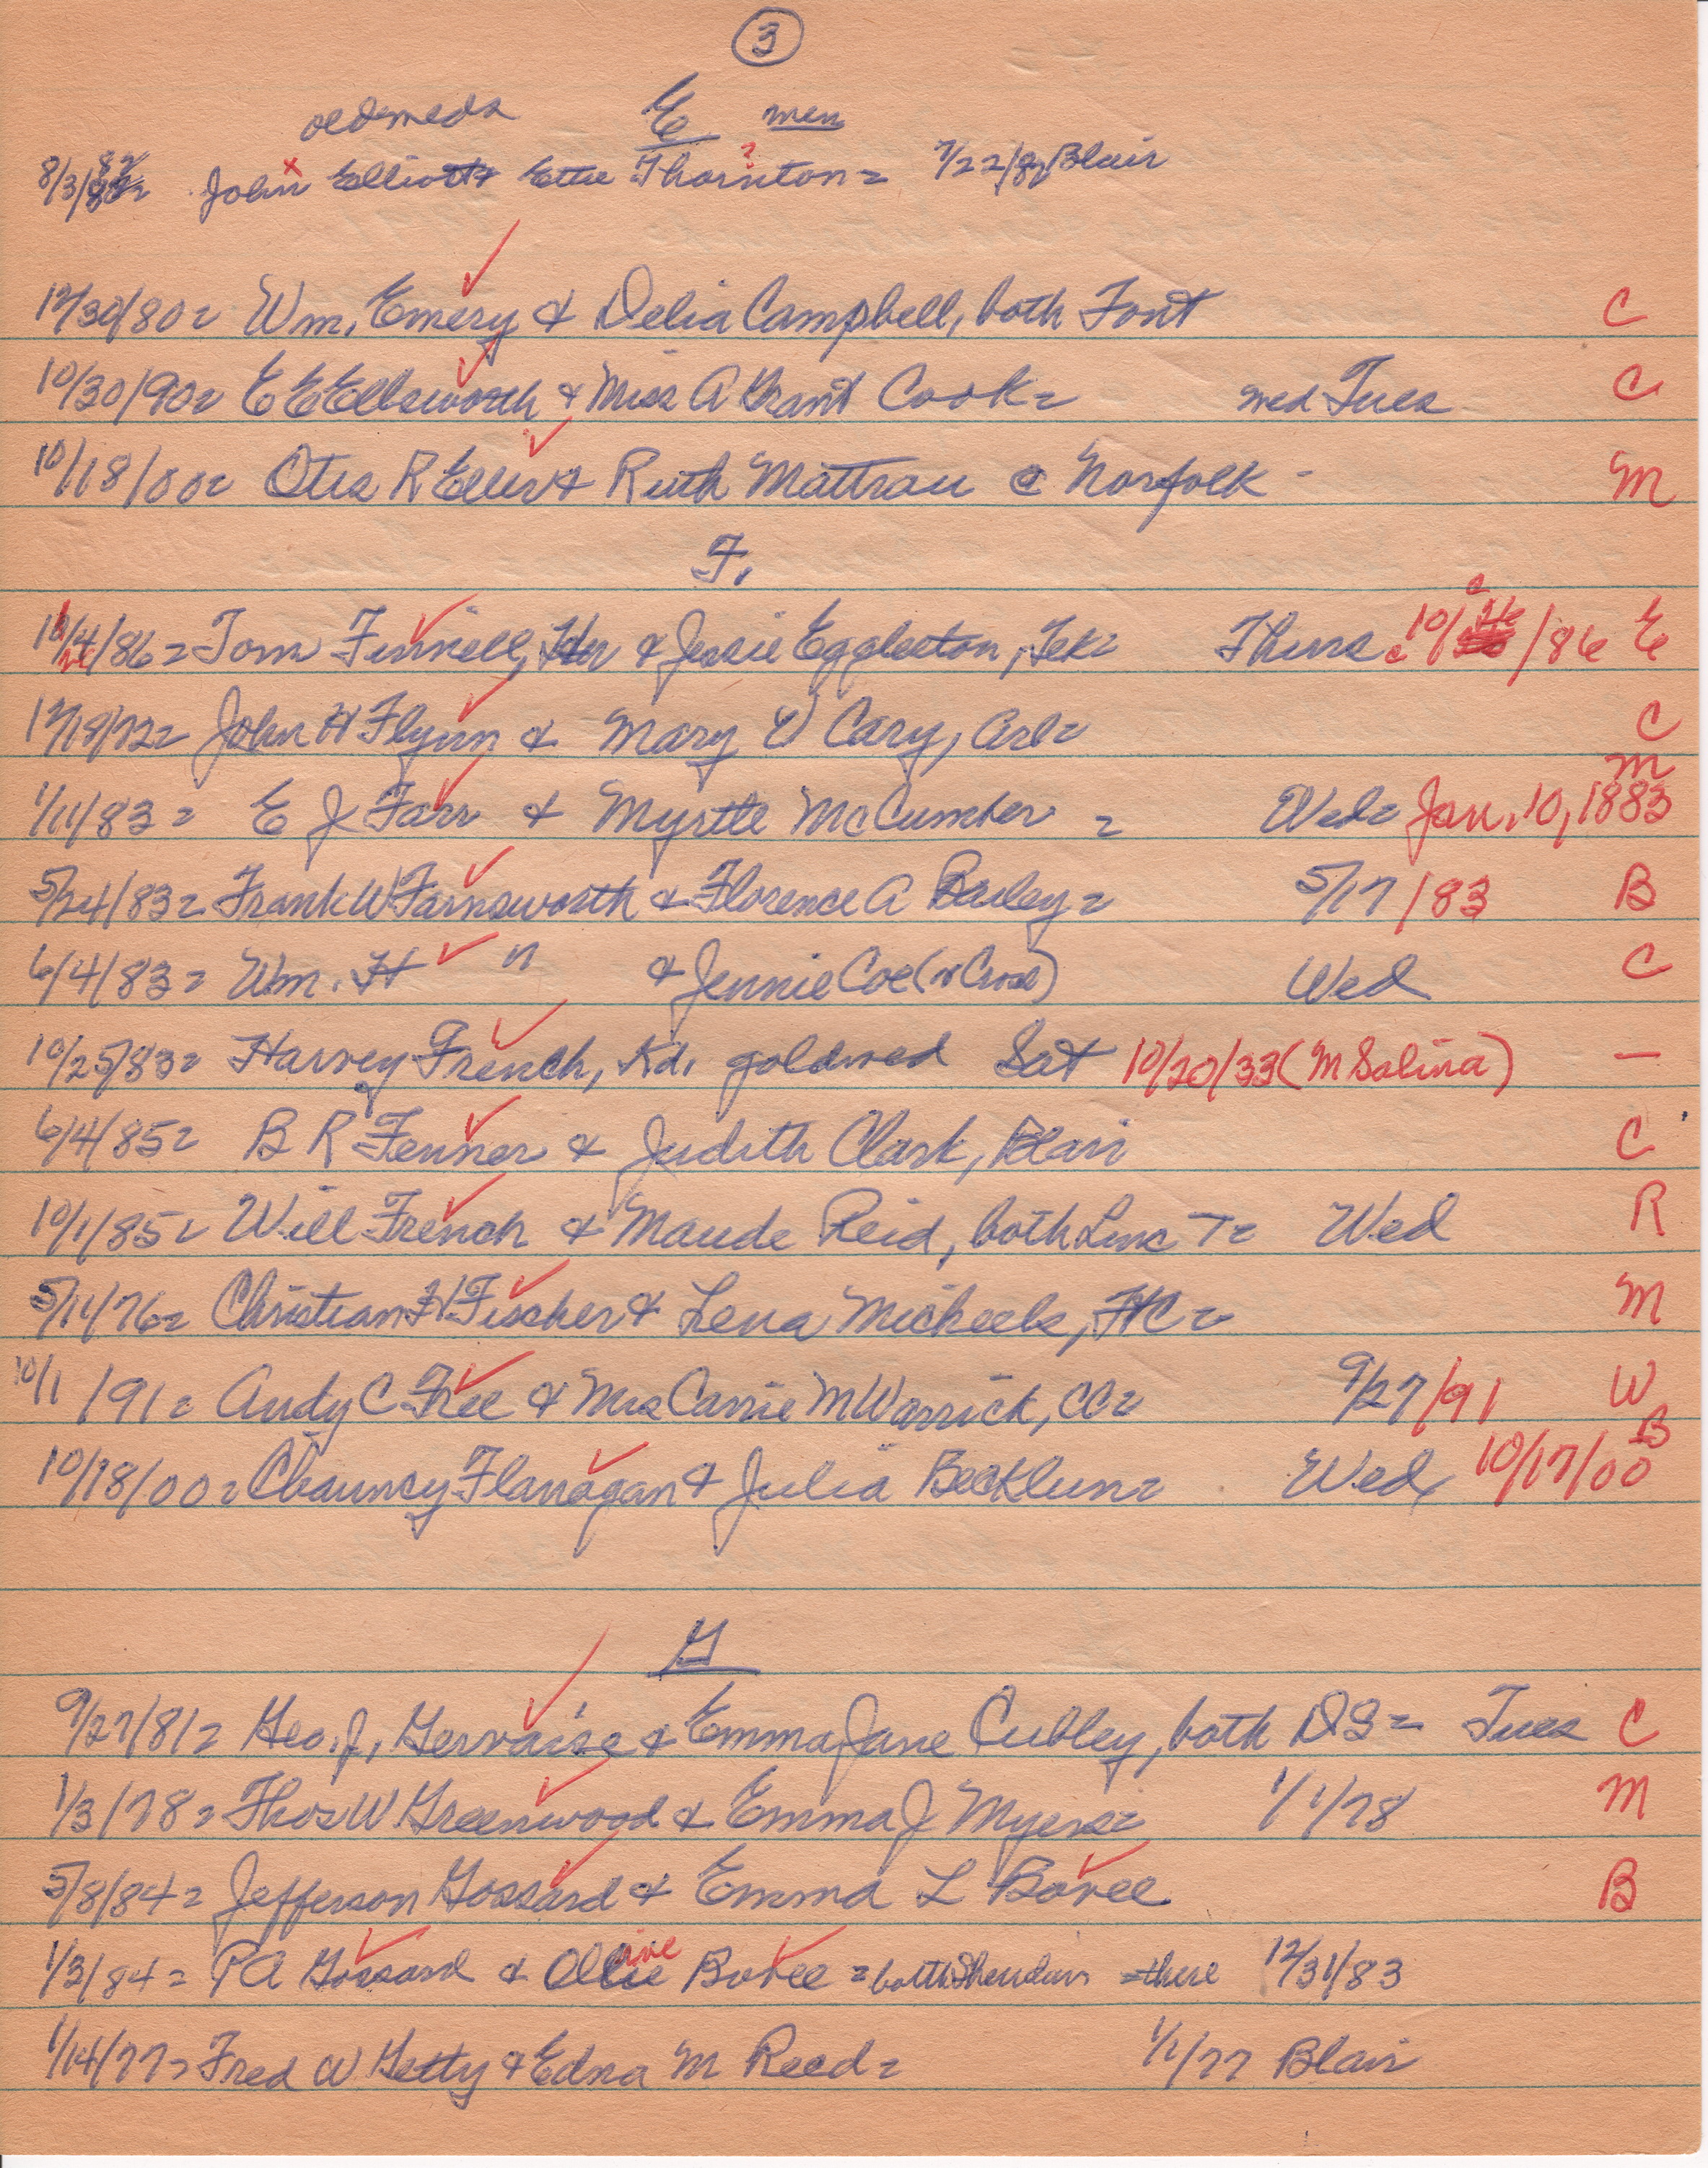 3
E men
8/3/82= John Elliott & Ettie Thornton= 7/22/82 Blair
x ?
12/30/80= Wm. Emery & Delia Campbell, both Font C
10/30/90= E E Ellsworth & Miss A Grant Cook= wed Tues C
10/18/00= Otis R Ellis & Ruth Mattrau @ Norfolk - M
F.
/4/86= Tom Finnell, & Jessie Eggleston, Tek= Thurs 10/ /86 E
12/18/72= John H Flynn & Mary E Cary, Arl= C
M
1/11/83= E J Farr & Myrtle McCumber = Wed= Jan. 10, 1883
5/24/83= Frank W Farnsworth & Florence A Bailey= 5/17/83 B
6/4/83= Wm. H " & Jennie Coe (or Crose) Wed C
10/25/83= Harvey French, Kd. goldwed Sat 10/20/33 (M Salina) —
6/4/85= B R Fenner & Judith Clark, Blair C
10/1/85= Will French & Maude Reid, both Linc T= Wed R
5/11/76= Christian H Fischer & Lena Micheels, FtC= M
10/1/91= Andy C Free & Mrs Carrie M Warrick, CC= 9/27/91 W
B
10/18/00= Chauncy Flanagan & Julia Becklun= Wed, 10/17/00
G
9/27/81= Geo. J. Gervaise & Emma Jane Cubley, both DS= Tues C
1/3/78= Thos W Greenwood & Emma J Myers= 1/1/78 M
5/8/84= Jefferson Gossard & Emma L Bovee B
1/3/84= P A Gossard & Ollie ive Bovee = both Sheridan =there 12/31/83
1/14/77= Fred W Getty & Edna M Reed= 1/1/77 Blair